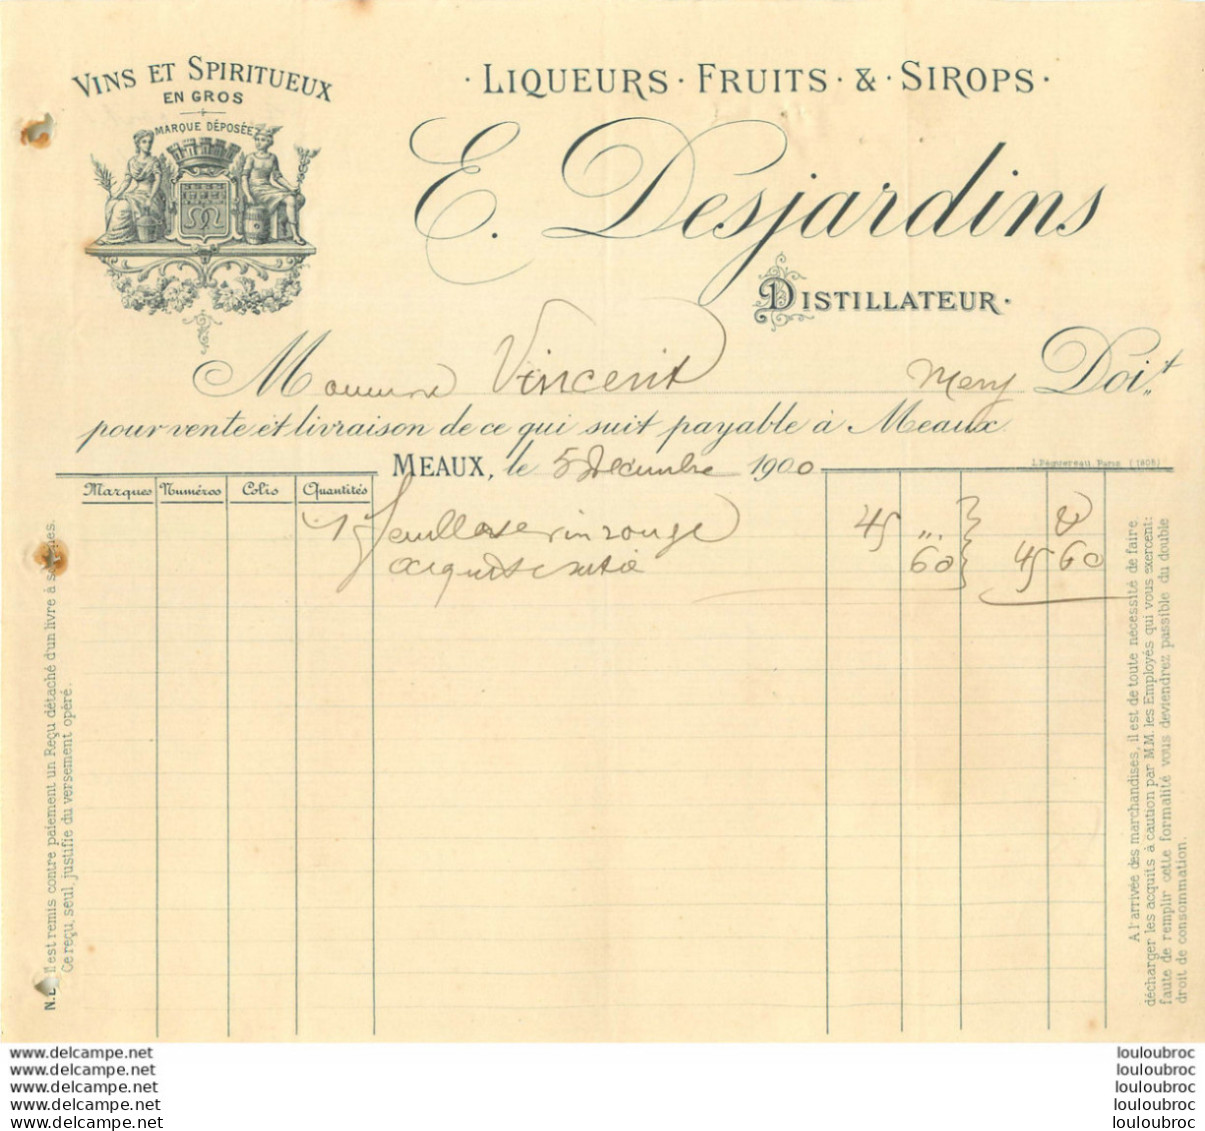 VINS ET SPIRITUEUX
EN GROS
MARQUE DÉPOSÉE
· LIQUEURS · FRUITS · & · SIROPS ·
E. Desjardins
DISTILLATEUR·
Monsieur Vincent Doit
pour vente et livraison de ce qui suit payable à Meaux
MEAUX, le 5 Décembre 1900
Paris (1905)
Marques Numéros Colis Quantités
1 feuillette vin rouge 45 "
acquit 60 45 60
N.B. Il est remis contre paiement un Reçu détaché d'un livre à souches.
Ce reçu, seul, justifie du versement opéré.
A l'arrivée des marchandises, il est de toute nécessité de faire
décharger les acquits à caution par M.M. les Employés qui vous exercent:
faute de remplir cette formalité vous deviendrez passible du double
droit de consommation.
www.delcampe.net louloubroc
www.delcampe.net louloubroc
www.delcampe.net louloubroc
www.delcampe.net louloubroc
www.delcampe.net louloubroc